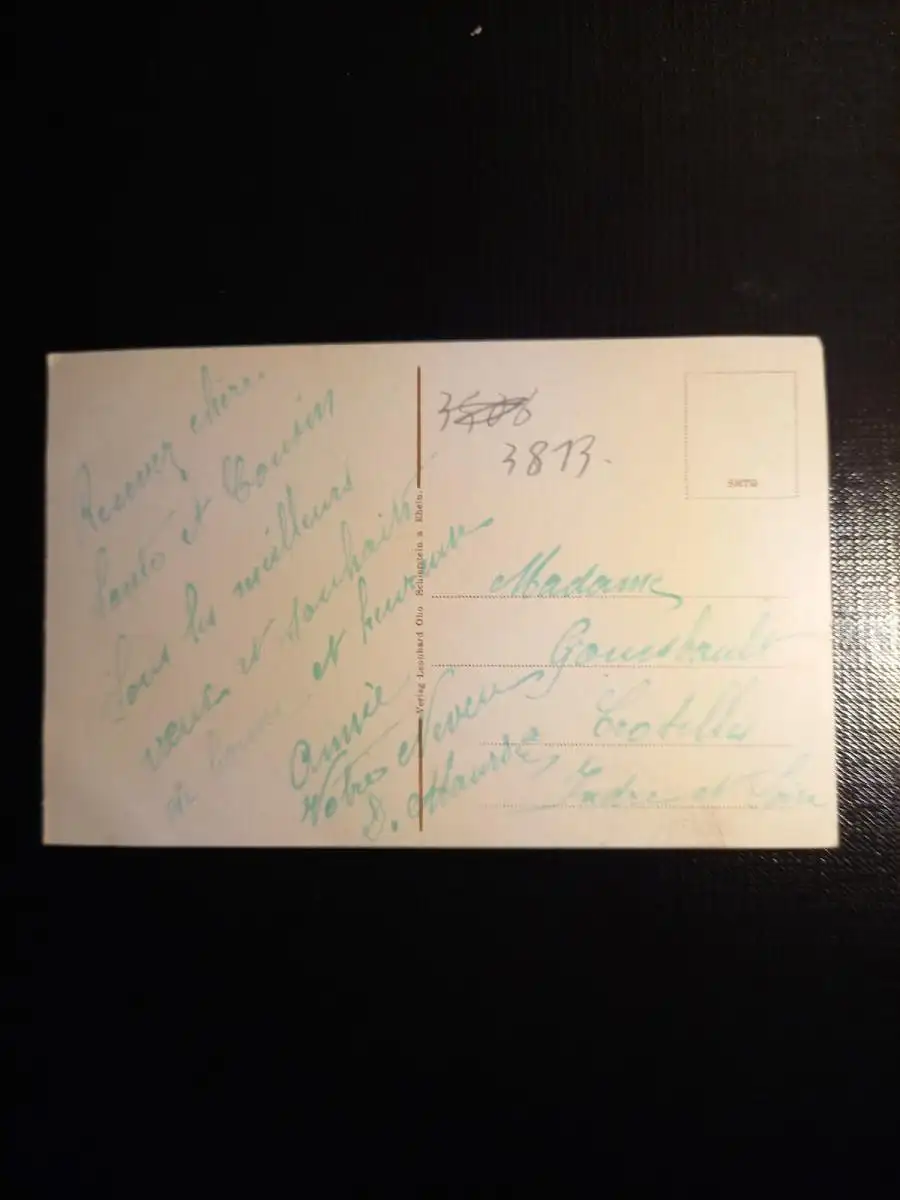 Recevez chère
Tante et Cousin
Tous les meilleurs
vœux et souhaits
de bonne et heureuse
Année
Votre Neveu
D. Maurice
Verlag Leonhard Otto Schierstein a Rhein.
3813.
Madame
Crotelles
Indre et Loire